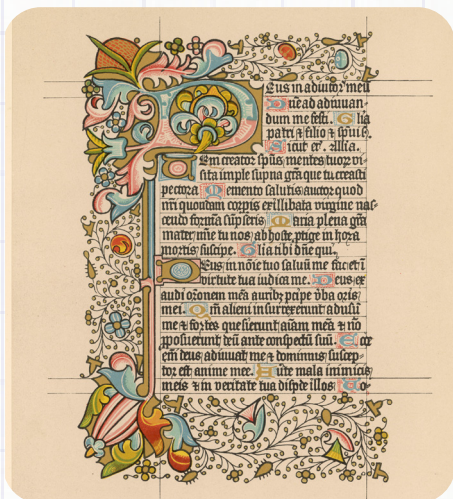 Deus in adiutor' meū
Dn̄e ad adiuuan-
dum me festī. Glīa
patri ⁊ filio ⁊ spūis.
Sicut er'. Allīa.
Uem creator spūs mentes tuoꝝ vi-
sita imple supna gr̄a que tu creasti
pectora. Memento salutis auctor quod
nr̄i quondam corpīs ex illibata virgine nas-
cendo formā sūpseris. Maria plena gr̄a
mater mīe tu nos ab hoste ptige in hora
mortis suscipe. Glīa tibi dn̄e qui.
Deus in nōīe tuo saluū me fac et ī
virtute tua iudica me. Deus ex
audi or̄onem meā auribꝫ pcipe v̄ba oris
mei. Qm̄ alieni insurrexerunt adusū
me ⁊ fortes quesierunt aīam meā ⁊ nō
pposuerunt deū ante conspectū suū. Ecce
em̄ deus adiuuat me ⁊ dominus suscep
tor est anime mee. Auerte mala inimicis
meis ⁊ in veritate tua dispde illos. Uo